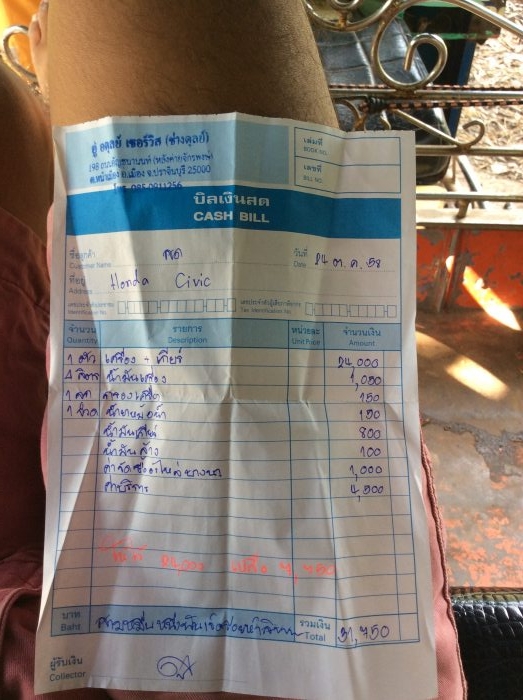 อู่ อดุลย์ เซอร์วิส (ช่างดุลย์)
198 ถนนปราจีนตคาม (หลังค่ายจักรพงษ์)
ต.หน้าเมือง อ.เมือง จ.ปราจีนบุรี 25000
โทร. 085 0911256
เล่มที่
BOOK NO.
เลขที่
BILL NO.
บิลเงินสด
CASH BILL
ชื่อลูกค้า
Customer Name
วันที่ 24 ต.ค. 58
Date
ที่อยู่ Honda Civic
Address
เลขประจำตัวผู้เสียภาษีอากร
Tax Identification No.
จำนวน รายการ หน่วยละ จำนวนเงิน
Quantity Description Unit Price Amount
1 ตัว เครื่อง + เกียร์ 24,000
4 ลิตร น้ำมันเครื่อง 1,080
1 ลูก กรองเครื่อง 150
1 ขวด น้ำยาหม้อน้ำ 120
น้ำมันเกียร์ 800
น้ำมันล้าง 100
1,000
ค่าบริการ 4,500
24,000 เหลือ 7,750
บาท สามหมื่นหนึ่งพันเจ็ดร้อยห้าสิบบาท รวมเงิน 31,750
Baht Total
ผู้รับเงิน
Collector